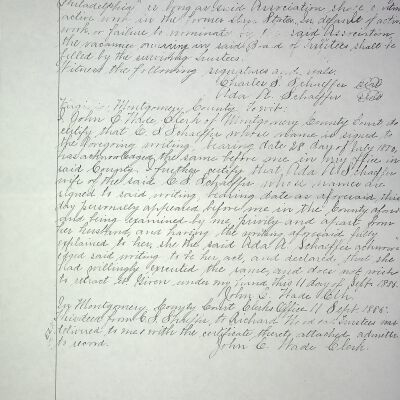 Philadelphia" so long as said Association
active work in the former Slave States, in default of active
work or failure to nominate by said Association,
the vacancies occurring in said Board of Trustees shall be
filled by the surviving Trustees.
Witness the following signatures and seals.
Charles S. Schaeffer Seal
Ada R. Schaeffer Seal
Virginia, Montgomery County to wit:
I John C. Wade, Clerk of Montgomery County Court do
certify that C. S. Schaeffer whose name is signed to
the foregoing writing bearing date 28 day of July
has acknowledged the same before me in my office in
said County. I further certify that Ada R. Schaeffer
wife of the said C. S. Schaeffer whose names are
signed to said writing bearing date as aforesaid this
day personally appeared before me in the County aforesaid
and being examined by me privily and apart from
her husband, and having the writing aforesaid fully
explained to her, she the said Ada R. Schaeffer acknow-
ledged said writing to be her act, and declared that she
had willingly executed the same, and does not wish
to retract it. Given under my hand this 11 day of Sept. 1885.
John C. Wade Clk.
In Montgomery County Court Clerks Office 11 Sept. 1885:
This deed from C. S. Schaeffer, to Richard Trustees was
delivered to me & with the certificate thereto attached admitted
to record.
John C. Wade Clerk.